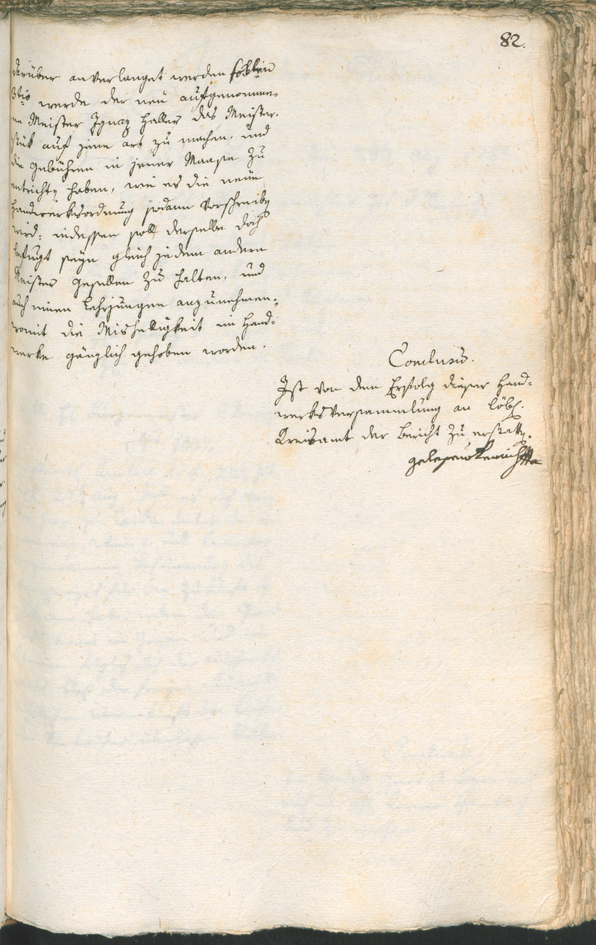 82.
darüber anverlanget werden sollten
3tio werde der neu aufgenomme-
ne Meister Ignaz Haller das Meister-
stük auf jene art zu machen, und
die gebühren in jener Maaße zu
entrichten haben, wie es die neue
Handwerksordnung sodann vorschreiben
wird: indessen soll derselbe doch
befugt seyn gleich jedem andern
Meister gesellen zu halten, und
auch einen Lehrjungen anzunehmen,
womit die Mishelligkeit im Hand-
werke gänzlich gehoben worden.
Conclusum.
Ist von dem Erfolg dieser Hand-
werksversammlung an löbl.
Kreisamt der Bericht zu erstatten.